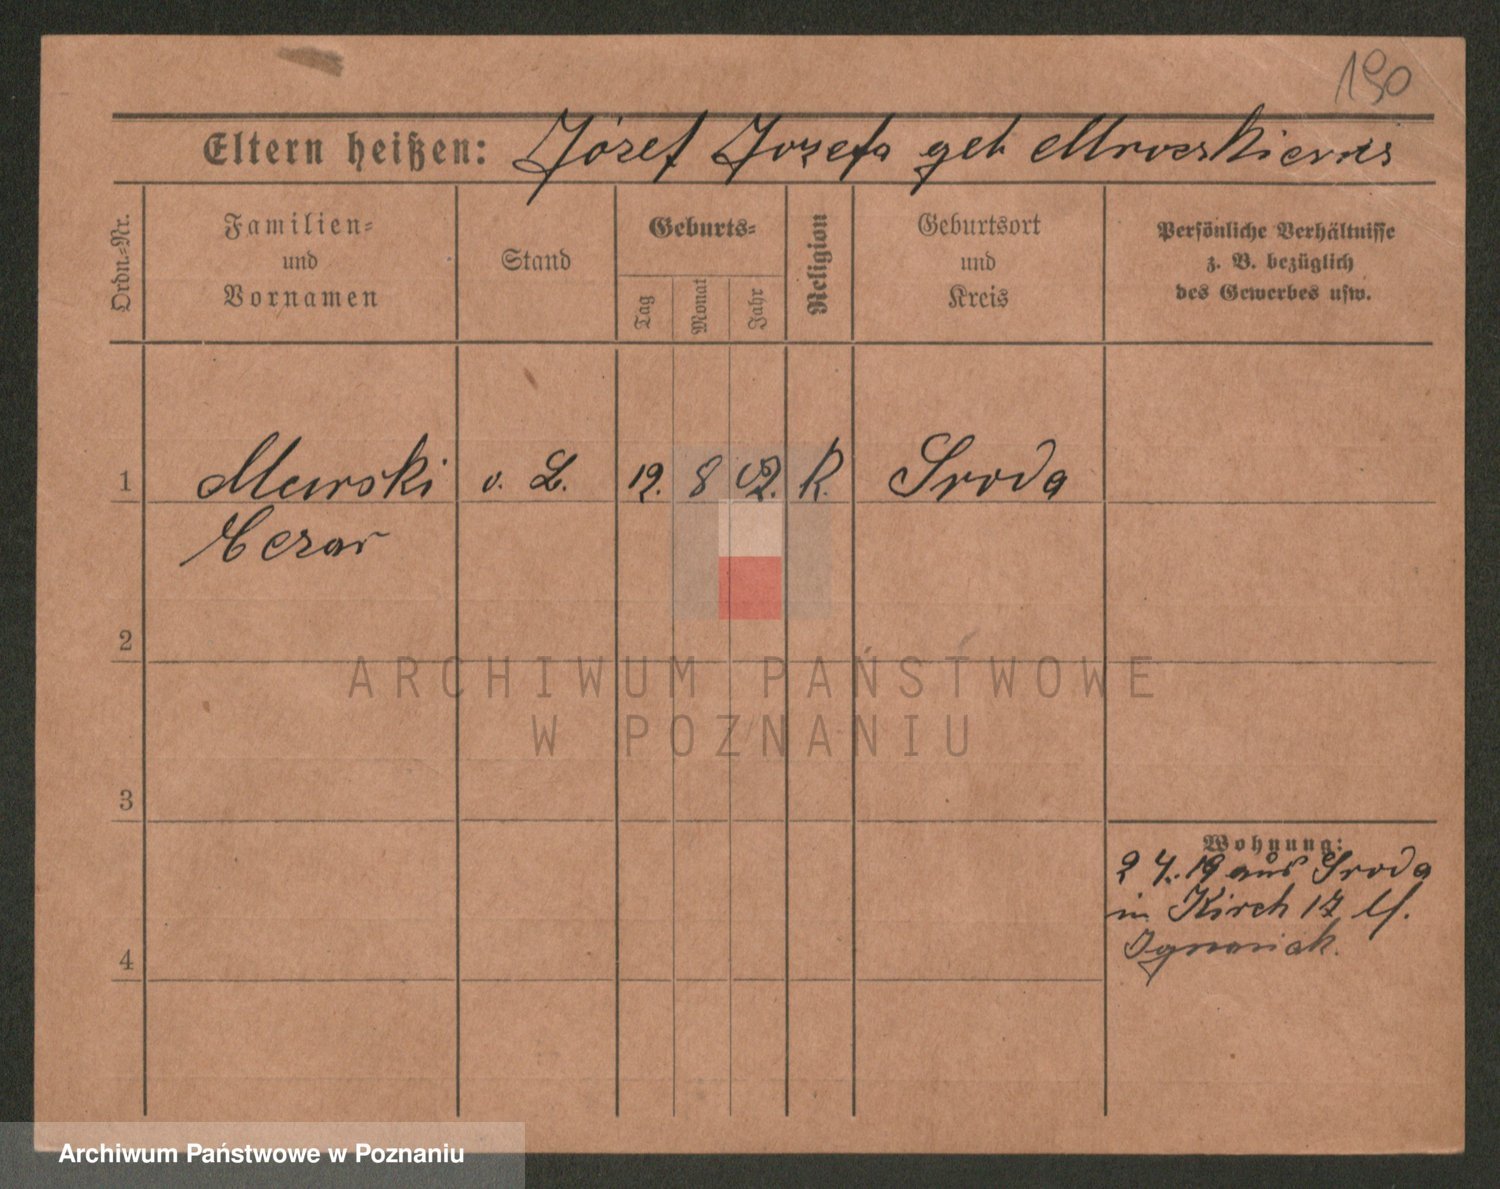 190
Eltern heißen: Józef Jozefa geb Mroczkiewicz
Ordn.-Nr.
Familien-
und
Vornamen
Stand
Geburts-
Tag
Monat
Jahr
Religion
Geburtsort
und
Kreis
Persönliche Verhältnisse
z. B. bezüglich
des Gewerbes usw.
1 Murski v. L. 12. 8 02. K. Sroda
Cezar
2
3
4
Wohnung:
2 4. 19 aus Sroda
in Kirch 17 bf.
Ignasiak.
ARCHIWUM PAŃSTWOWE
W POZNANIU
Archiwum Państwowe w Poznaniu